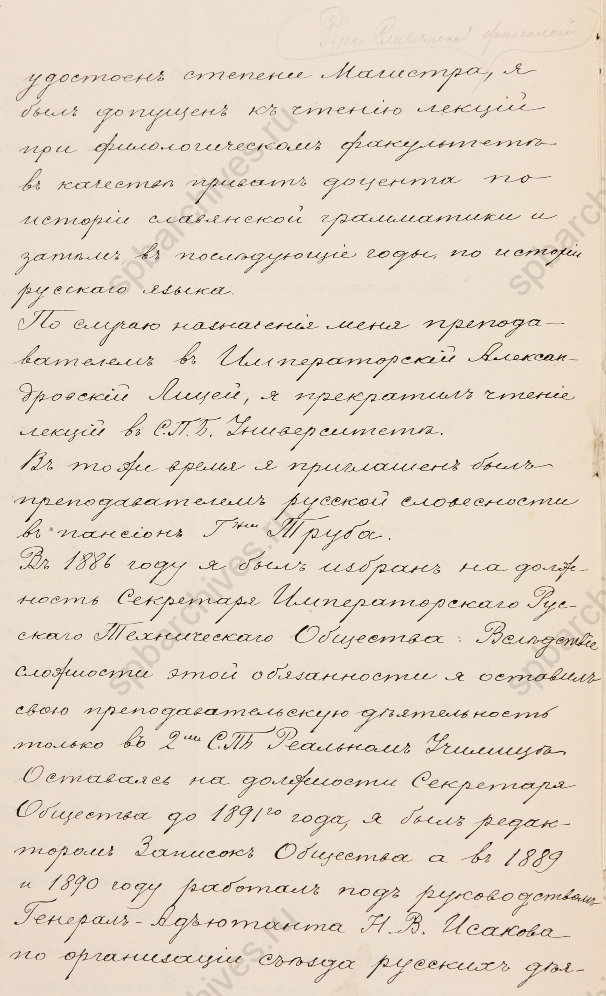 удостоенъ степени Магистра, я
былъ допущенъ къ чтенію лекцій
при филологическомъ факультетѣ
въ качествѣ приватъ доцента по
исторіи славянской грамматики и
затѣмъ въ послѣдующіе годы, по исторіи
русскаго языка.
По случаю назначенія меня препода-
вателемъ въ Императорскій Алексан-
дровскій Лицей, я прекратилъ чтеніе
лекцій въ С.П.Б. Университетѣ.
Въ тоже время я приглашенъ былъ
преподавателемъ русской словесности
въ пансіонъ Г жи Труба.
Въ 1886 году я былъ избранъ на долж-
ность Секретаря Императорскаго Рус-
скаго Техническаго Общества. Вслѣдствіе
сложности этой обязанности я оставилъ
свою преподавательскую дѣятельность
только въ 2мъ С.ПБ Реальномъ Училищѣ.
Оставаясь на должности Секретаря
Общества до 1891го года, я былъ редак-
торомъ Записокъ Общества а въ 1889
и 1890 году работалъ подъ руководствомъ
Генералъ-Адъютанта Н. В. Исакова
по организаціи съѣзда русскихъ дѣя-
spbarchives.ru
spbarchives.ru
spbarchives.ru
spbarchives.ru